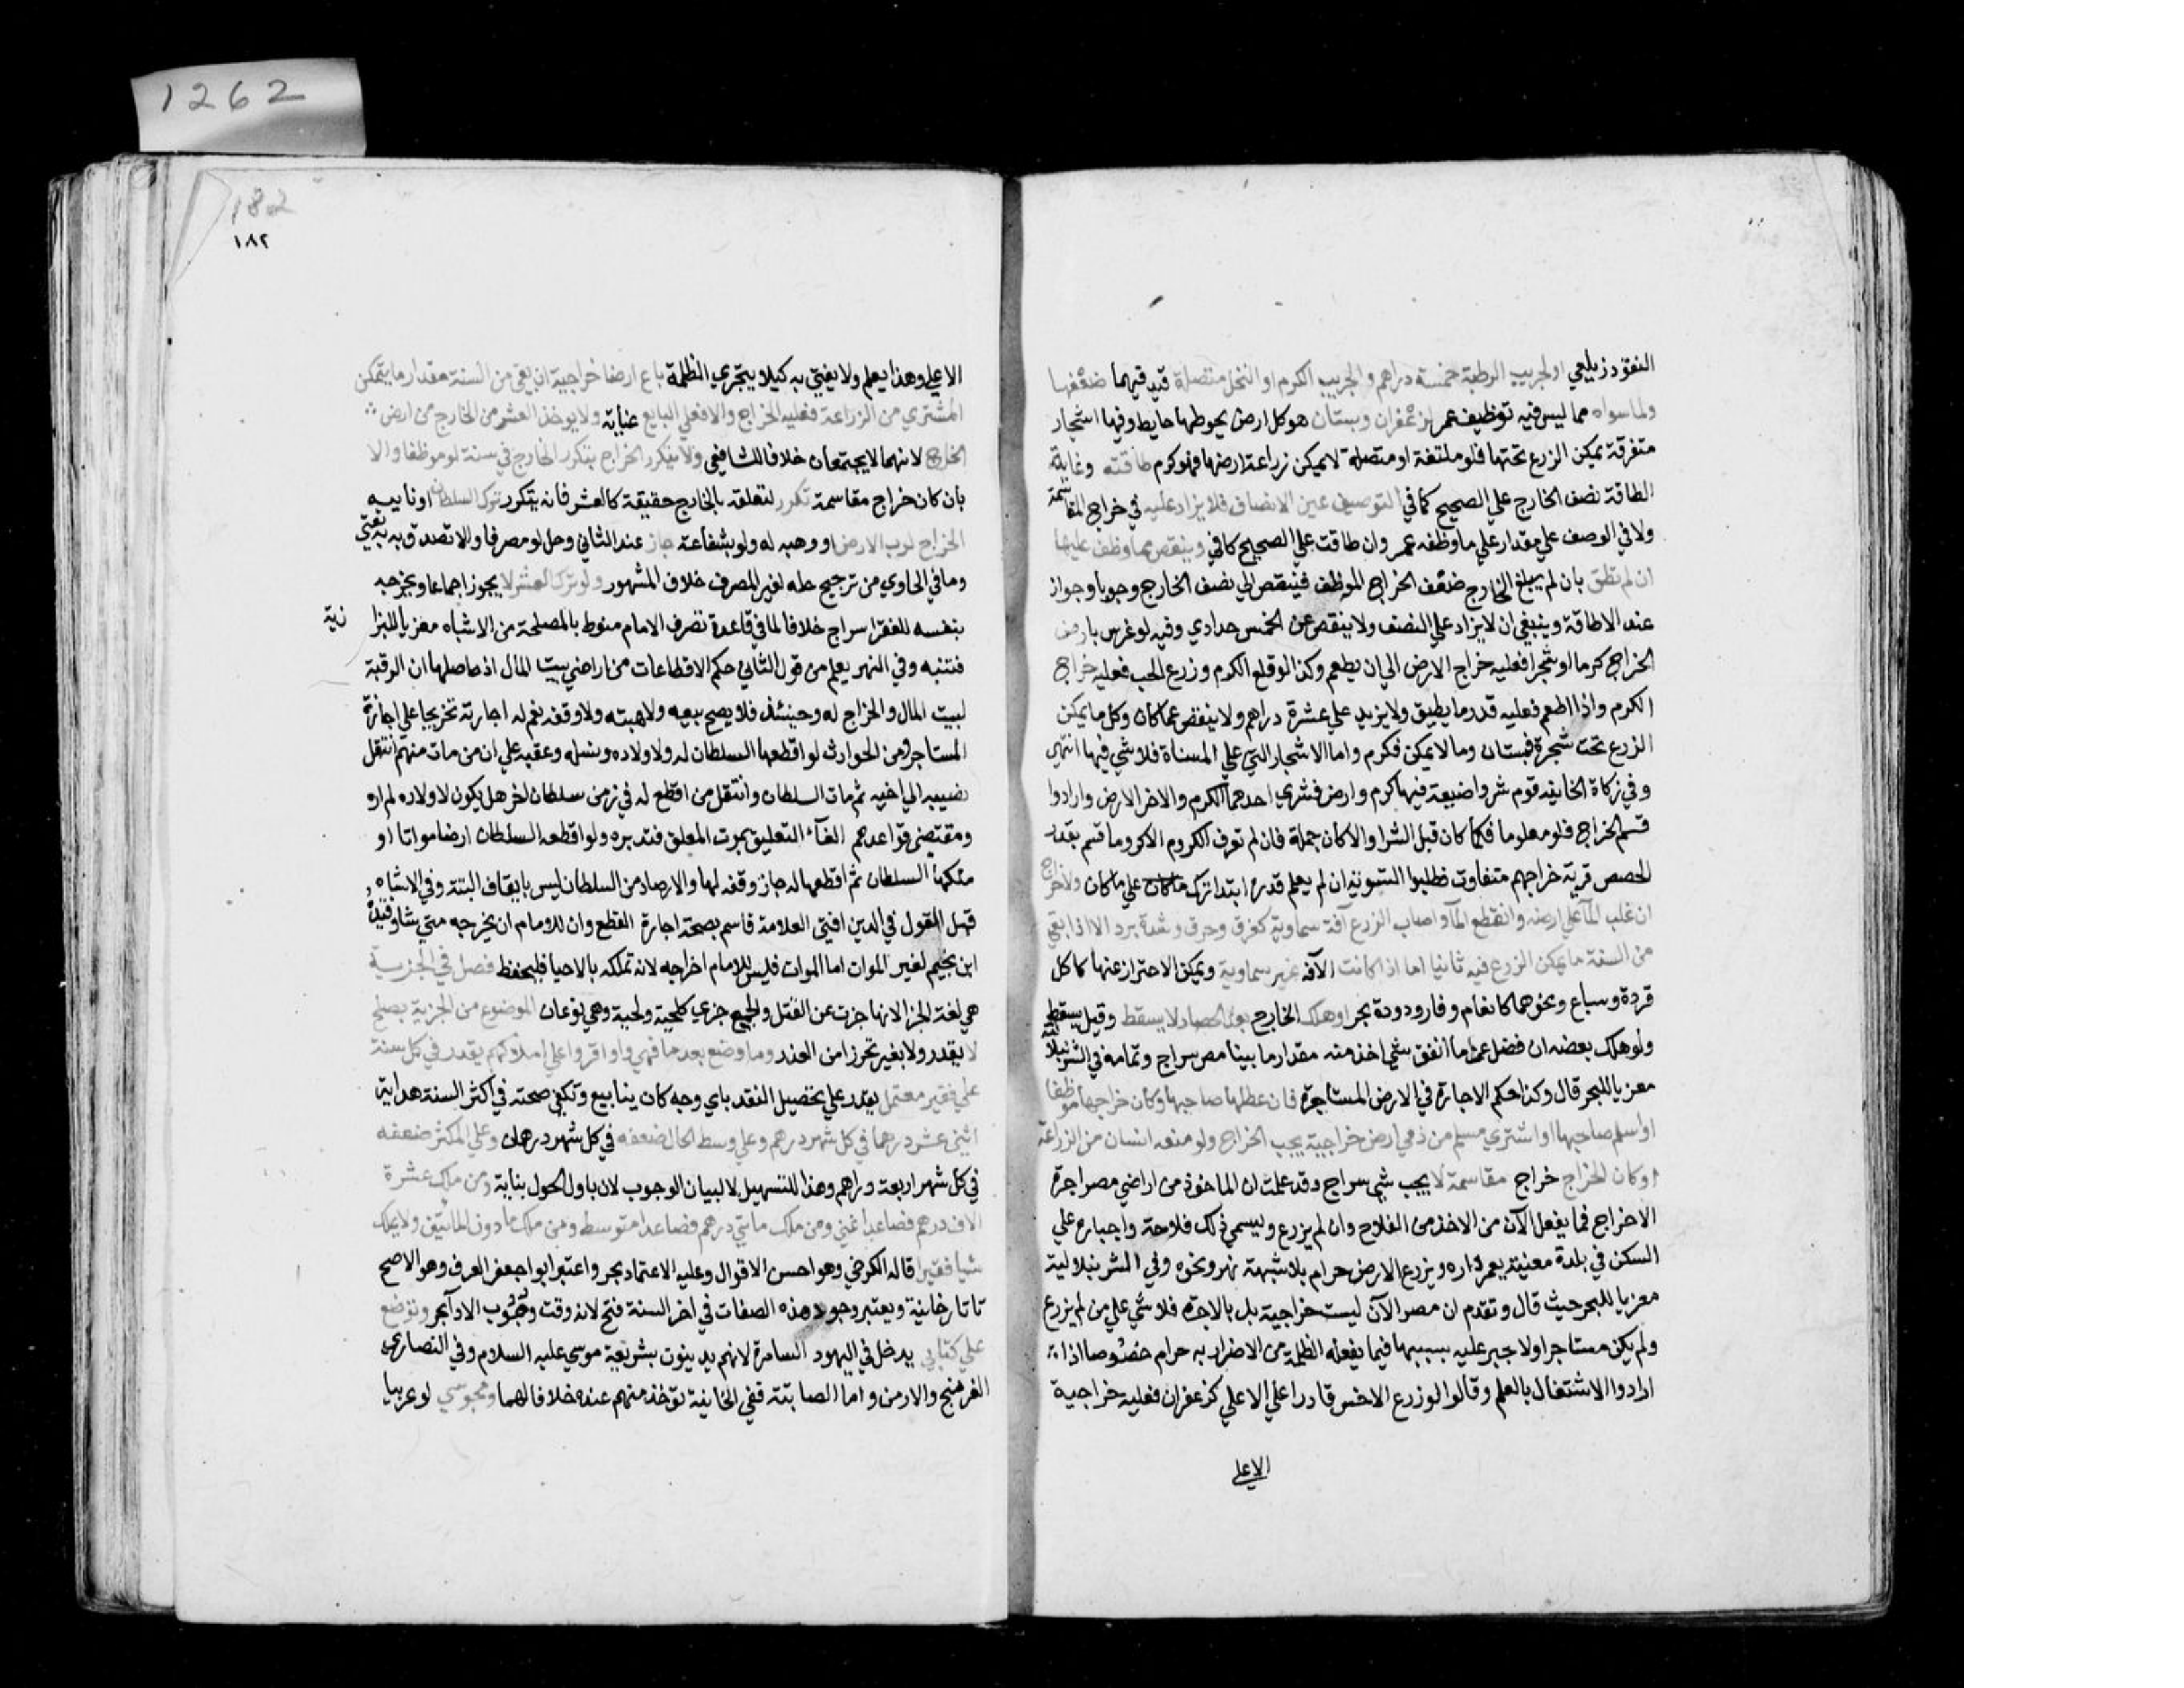 النقود زيلعي ولجريب الرطبة خمسة دراهم ولجريب الكرم او النخل متصلة قيد فيهما ضعفها
ولما سواه مما ليس فيه توظيف عمر كزعفران وبستان هو كل ارض يحوطها حايط وفيها اشجار
متفرقة يمكن الزرع تحتها فلو ملتفة او متصلة لا يمكن زراعة ارضها فهو كرم طاقته وغاية
الطاقة نصف الخارج علي الصحيح كما في التوصيف عين الانصاف فلا يزاد عليه في خراج المقاسمة
ولا في الوصف علي مقدار علي ما وظفه عمر وان طاقت علي الصحيح كافي وينقص مما وظف عليها
ان لم تطق بان لم يبلغ الخارج ضعف الخراج الموظف فينقص الي نصف الخارج وجوبا وجواز
عند الاطاقة وينبغي ان لا يزاد علي النصف ولا ينقص عن الخمس حدادي وفيه لو غرس بارض
الخراج كرما او شجرا فعليه خراج الارض الي ان يطعم وكذا لو قلع الكرم وزرع الحب فعليه خراج
الكرم واذا اطعم فعليه قدر ما يطيق ولا يزيد علي عشرة دراهم ولا ينقص عما كان وكل ما يمكن
الزرع تحت شجرة فبستان وما لا يمكن فكرم واما الاشجار التي علي المسناة فلا شي فيها انتهي
وفي زكاة الخانيه قوم شروا ضيعة فيها كرم وارض فشري احدهما الكرم والاخر الارض وارادوا
قسم الخراج فلو معلوما فكما كان قبل الشرا والا كان جملة فان لم تعرف الكروم الا كروما قسم بقدر
الحصص قرية خراجهم متفاوت فطلبوا التسوية ان لم يعلم قدره ابتدا ترك ما كان علي ما كان ولا خراج
ان غلب المآ علي ارضه وانقطع المآ واصاب الزرع آفة سماوية كغرق وحرق وشدة برد الا اذا بقي
من السنة ما يمكن الزرع فيه ثانيا اما اذا كانت الآفه غير سماوية ويمكن الاحتراز عنها كاكل
قردة وسباع ونحوهما كانعام وفار ودودة بحر او هلك الخارج بعد الحصاد لا يسقط وقيل يسقط
ولو هلك بعضه ان فضل عما انفق شي اخذ منه مقدار ما بينا مصر سراج وتمامه في الشرنبلالية
معزيا للبحر قال وكذا حكم الاجارة في الارض المستاجرة فان عطلها صاحبها وكان خراجها موظفا
او اسلم صاحبها او اشتري مسلم من ذمي ارض خراجية يجب الخراج ولو منعه انسان من الزراعة
او كان الخراج خراج مقاسمة لا يجب شي سراج وقد علمت ان الماخوذ من اراضي مصر اجرة
لا خراج فما يفعل الآن من الاخذ من الفلاح وان لم يزرع ويسمي ذلك فلاحة واجباره علي
السكن في بلدة معينة يعمر داره ويزرع الارض حرام بلا شبهة نهر ونحوه وفي الشرنبلالية
معزيا للبحر حيث قال وتقدم ان مصر الآن ليست خراجية بل بالاجرة فلا شي علي من لم يزرع
ولم يكن مستاجرا ولا جبر عليه بسببها فيما يفعله الظلمة من الاضرار به حرام خصوصا اذا
ارادوا الاشتغال بالعلم وقالوا لو زرع الاخس قادرا علي الاعلي كزعفران فعليه خراجية
الاعلي
1262
182
١٨٢
الاعلي وهذا يعلم ولا يفتي به كيلا يتجري الظلمة باع ارضا خراجية ان بقي من السنة مقدار ما يتمكن
المشتري من الزراعة فعليه الخراج والا فعلي البايع عناية ولا يوخذ العشر من الخارج من ارض
الخراج لانهما لا يجتمعان خلافا للشافعي ولا يتكرر الخراج بتكرر الخارج في سنة لو موظفا والا
بان كان خراج مقاسمة تكرر لتعلقه بالخارج حقيقة كالعشر فانه يتكرر ترك السلطان او نايبه
الخراج لرب الارض او وهبه له ولو بشفاعة جاز عند الثاني وحل لو مصرفا والا تصدق به يفتي
وما في الحاوي من ترجيح حله لغير المصرف خلاف المشهور ولو ترك العشر لا يجوز اجماعا ويخرجه
بنفسه للفقرا سراج خلافا لما في قاعدة تصرف الامام منوط بالمصلحة من الاشباه معزيا للبزا
زية
فتنبه وفي النهر يعلم من قول الثاني حكم الاقطاعات من اراضي بيت المال اذ حاصلها ان الرقبة
لبيت المال والخراج له وحينئذ فلا يصح بيعه ولا هبته ولا وقفه نعم له اجارته تخريجا علي اجارة
المستاجر ومن الحوادث لو اقطعها السلطان له ولاولاده ونسله وعقبه علي ان من مات منهم انتقل
نصيبه الي اخيه ثم مات السلطان وانتقل من اقطع له في زمن سلطان اخر هل يكون لاولاده لم ار
ومقتضي قواعدهم الغآء التعليق بموت المعلق فتدبره ولو اقطعه السلطان ارضا مواتا او
ملكها السلطان ثم اقطعها له جاز وقفه لها والارصاد من السلطان ليس بايقاف البتة وفي الاشباه
قبيل القول في الدين افتي العلامة قاسم بصحة اجارة المقطع وان للامام ان يخرجه متي شا وقيده
ابن نجيم لغير الموات اما الموات فليس للامام اخراجه لانه تملكه بالاحيا فليحفظ فصل في الجزية
هي لغة الجزا لانها جزت عن القتل والجمع جزي كلحية ولحي وهي نوعان الموضوع من الجزية بصلح
لا يقدر ولا يغير تحرزا من الغدر وما وضع بعد ما قهروا واقروا علي املاكهم يقدر في كل سنة
علي فقير معتمل يقدر علي تحصيل النقد باي وجه كان ينابيع وتكفي صحته في اكثر السنة هداية
اثني عشر درهما في كل شهر درهم وعلي وسط الحال ضعفه في كل شهر درهمان وعلي المكثر ضعفه
في كل شهر اربعة دراهم وهذا للتسهيل لا لبيان الوجوب لان باول الحول بناية ومن ملك عشرة
الاف درهم فصاعدا غني ومن ملك مايتي درهم فصاعدا متوسط ومن ملك ما دون المايتين ولا يملك
شيا فقير قاله الكرخي وهو احسن الاقوال وعليه الاعتماد بحر واعتبر ابو جعفر العرف وهو الاصح
تاتارخانية ويعتبر وجود هذه الصفات في اخر السنة فتح لانه وقت وجوب الادآ بحر وتوضع
علي كتابي يدخل في اليهود السامرة لانهم يدينون بشريعة موسي عليه السلام وفي النصاري
الفرنج والارمن واما الصابئة ففي الخانية توخذ منهم عنده خلافا لهما ومجوسي لو عربيا